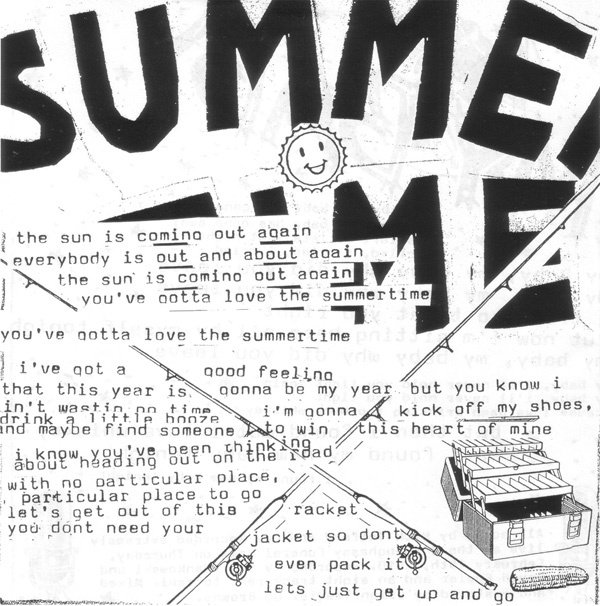 SUMME
TIME
the sun is coming out again
everybody is out and about again
the sun is coming out again
you've gotta love the summertime
you've gotta love the summertime
i've got a good feeling
that this year is gonna be my year but you know i
ain't wastin no time i'm gonna kick off my shoes,
drink a little booze
and maybe find someone to win this heart of mine
i know you've been thinking
about heading out on the road
with no particular place,
particular place to go
let's get out of this racket
you dont need your jacket so dont
even pack it
lets just get up and go